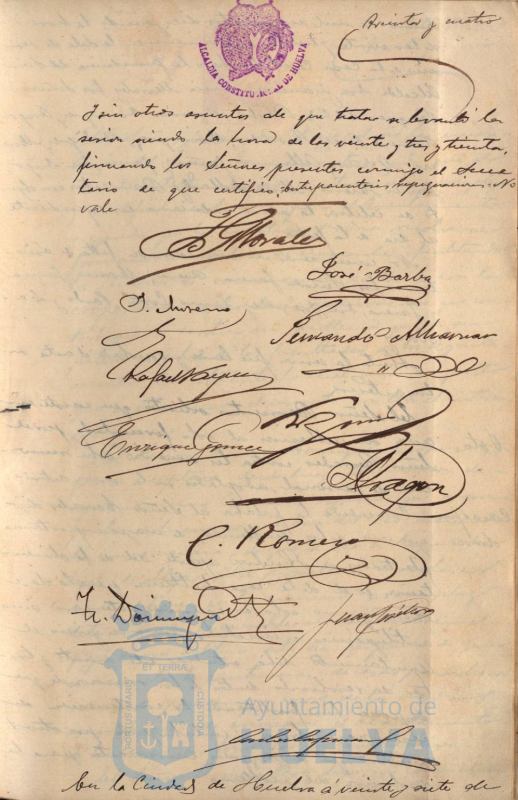 ALCALDIA CONSTITUCIONAL DE HUELVA
y cuatro
Y sin otros asuntos de que tratar se levantó la
sesion siendo la hora de las veinte y tres y treinta,
firmando los Señores presentes conmigo el Secre
tario de que certifico. Entreparentesis No
vale
Morales
José Barba
J. Moreno
Fernando
Rafael
Enrique Gomez
Aragon
C. Romero
Fr. Dominguez
Juan
PORTUS MARIS
ET TERRÆ
CUSTODIA
Ayuntamiento de
HUELVA
En la Ciudad de Huelva á veinte y siete de